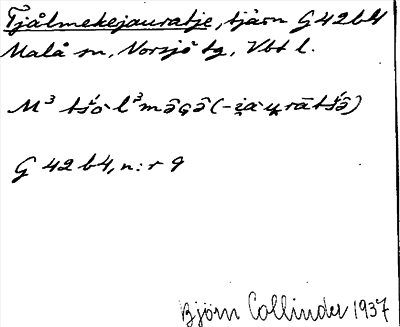 Tjålmekejauratje, tjärn G42b4
Malå sn, Norsjö tg, Vbt l.
M³ tš́ō·l³mə̑ɢə̑(-i̯ā·u̯rātš́ə̑)
G 42 b4, n:r 9
Björn Collinder 1937